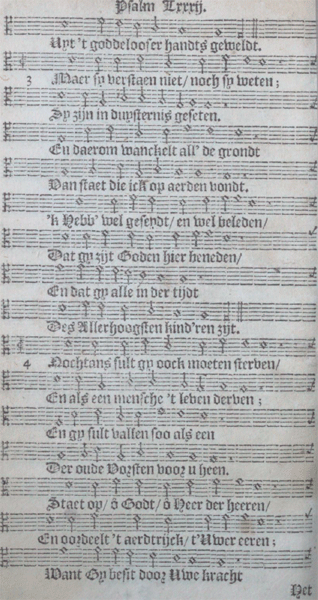 Psalm Lxxxij.
Uyt 't goddelooser handts geweldt.
3 Maer sy verstaen niet / noch sy weten;
Sy zijn in duysternis geseten.
En daerom wanckelt all' de grondt
Van staet die ick op aerden vondt.
'k Hebb' wel geseydt / en wel beleden /
Dat gy zijt Goden hier beneden /
En dat gy alle in der tijdt
Des Allerhoogsten kind'ren zijt.
4 Nochtans sult gy oock moeten sterven /
En als een mensche 't leven derven;
En gy sult vallen soo als een
Der oude Vorsten voor u heen.
Staet op / ô Godt / ô Heer der heeren /
En oordeelt 't aerdtrijck / t'Uwer eeren;
Want Gy besit door Uwe kracht
Het